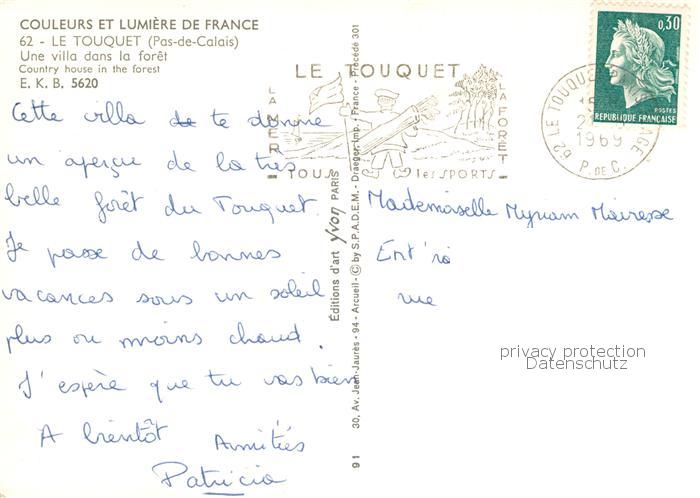 COULEURS ET LUMIÈRE DE FRANCE
62 - LE TOUQUET (Pas-de-Calais)
Une villa dans la forêt
Country house in the forest
E. K. B. 5620
Cette villa te donne
un aperçu de la très
belle forêt du Touquet.
Je passe de bonnes
vacances sous un soleil
plus ou moins chaud.
J'espère que tu vas bien
A bientôt Amitiés
Patricia
Editions d'art yvon PARIS
30, Av. Jean-Jaurès - 94 - Arcueil - © by S.P.A.D.E.M. - Draeger, Imp. - France - Procédé 301
91
LE TOUQUET
LA MER
LA FORET
TOUS les SPORTS
0,30
POSTES
REPUBLIQUE FRANÇAISE
62 LE TOUQUET PLAGE
1969
P. DE C.
Mademoiselle Myriam Mairesse
rue
privacy protection
Datenschutz